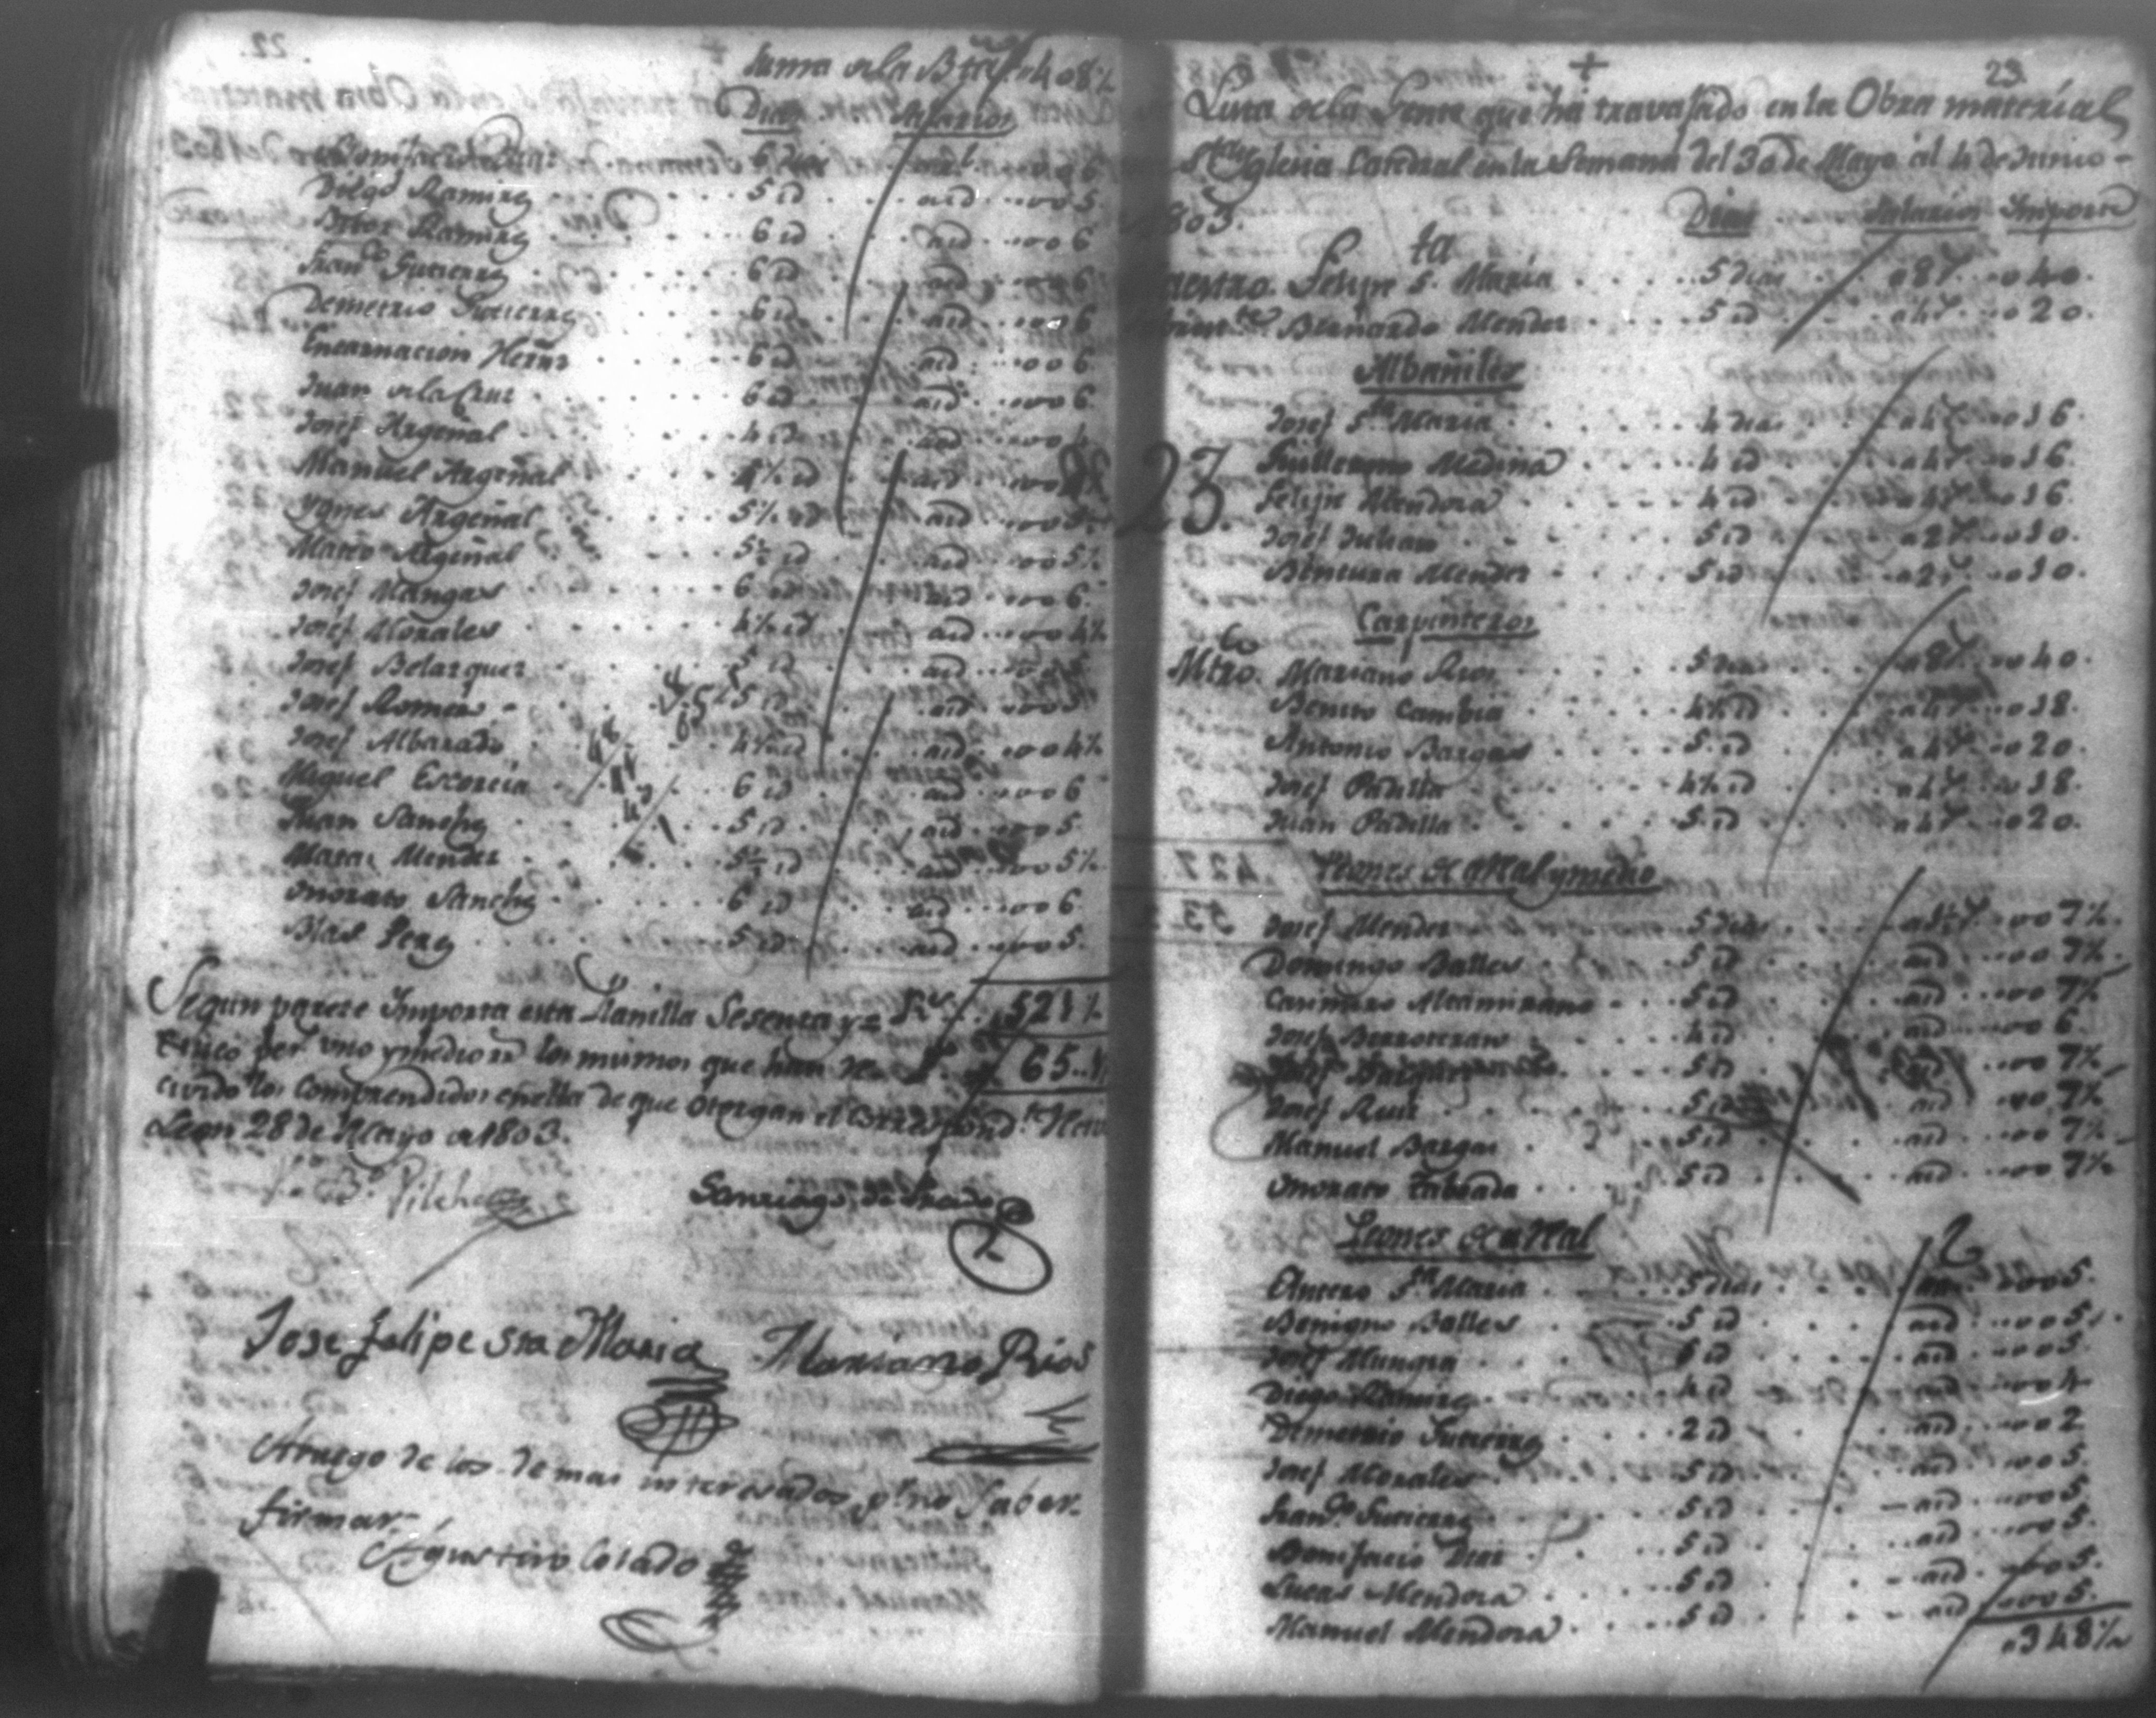 22.
Suma de la Bta 408½
Dias Salarios
Bonifacio Dias 6 dias a 1 006
Diego Ramirez 5 id aid 005
Bitor Ramirez 6 id aid 006
Franco Gutierrez 6 id aid 006
Demetrio Gutierrez 6 id aid 006
Encarnacion Herñz 6 id aid 006
Juan de la Cruz 6 id aid 006
Josef Argeñal 4 id aid 004
Manuel Argeñal 4½ id aid 00
Ygnes Argeñal 5½ id aid 005
Mateo Argeñal 5½ id aid 005½
Josef Mangas 6 id aid 006
Josef Morales 4½ id aid 004½
Josef Belasquez 5 id aid 005
Josef Romero 5 id aid 005
Josef Albarado 4½ id aid 004½
Miguel Escorcia 6 id aid 006
Juan Sanchez 5 id aid 005
Matai Mendez 5½ id aid 005½
Onorato Sanchez 6 id aid 006
Blas Perez 5 id aid 005
Segun parece Importa esta Planilla Sesenta y 521½
cinco per uno y medio rr los mismos que han re 65.1
civido los Comprendidos en ella de que otorgan el
Leon 28 de Mayo de 1803.
Vo Bo Pilche
Santiago de Prado
Jose Felipe Sta Maria Mariano Rios
A ruego de los demas interesados pr no Saber
firmar
Agustin Colado
+
23.
Lista de la Gente que ha travajado en la Obra material
Sta Iglesia Catedral en la Semana del 30 de Mayo al 4 de Junio
1803.
Dias Salarios Importe
aestro Felipe Sta Maria 5 dias a 8 r 040
Bernardo Mendez 5 id a 4 r 020
Albañiles
Josef Sta Maria 4 dias a 4 r 016
23. Guillermo Medina 4 id a 4 r 016
Felipe Mendoza 4 id a 4 r 016
Josef Julian 5 id a 2 r 010
Bentura Mendez 5 id a 2 r 010
Carpinteros
Mtro. Mariano Rios 5 dias a 8 r 040
Benito Cambia 4½ id a 4 r 018
Antonio Bargas 5 id a 4 r 020
Josef Padilla 4½ id a 4 r 018
Juan Padilla 5 id a 4 r 020
Peones de a Real y medio
Josef Mendez 5 dias a 1½ r 007½
Domingo Balles 5 id aid 007½
Casimiro Altamirano 5 id aid 007½
Josef Berroteran 4 id aid 006
5 id aid 007½
Josef Ruiz 5 id aid 007½
Manuel Bargas 5 id aid 007½
Onorato Taboada 5 id aid 007½
Peones de a Real
Antero Sta Maria 5 dias 005
Benigno Balles 5 id aid 005
Josef Mungia 5 id aid 005
Diego Ramirez 4 id aid 004
Demetrio Gutierrez 2 id aid 002
Josef Morales 5 id aid 005
Franco Gutierrez 5 id aid 005
Bonifacio Dias 5 id aid 005
Lucas Mendoza 5 id aid 005
Manuel Mendoza 5 id aid 005
348½